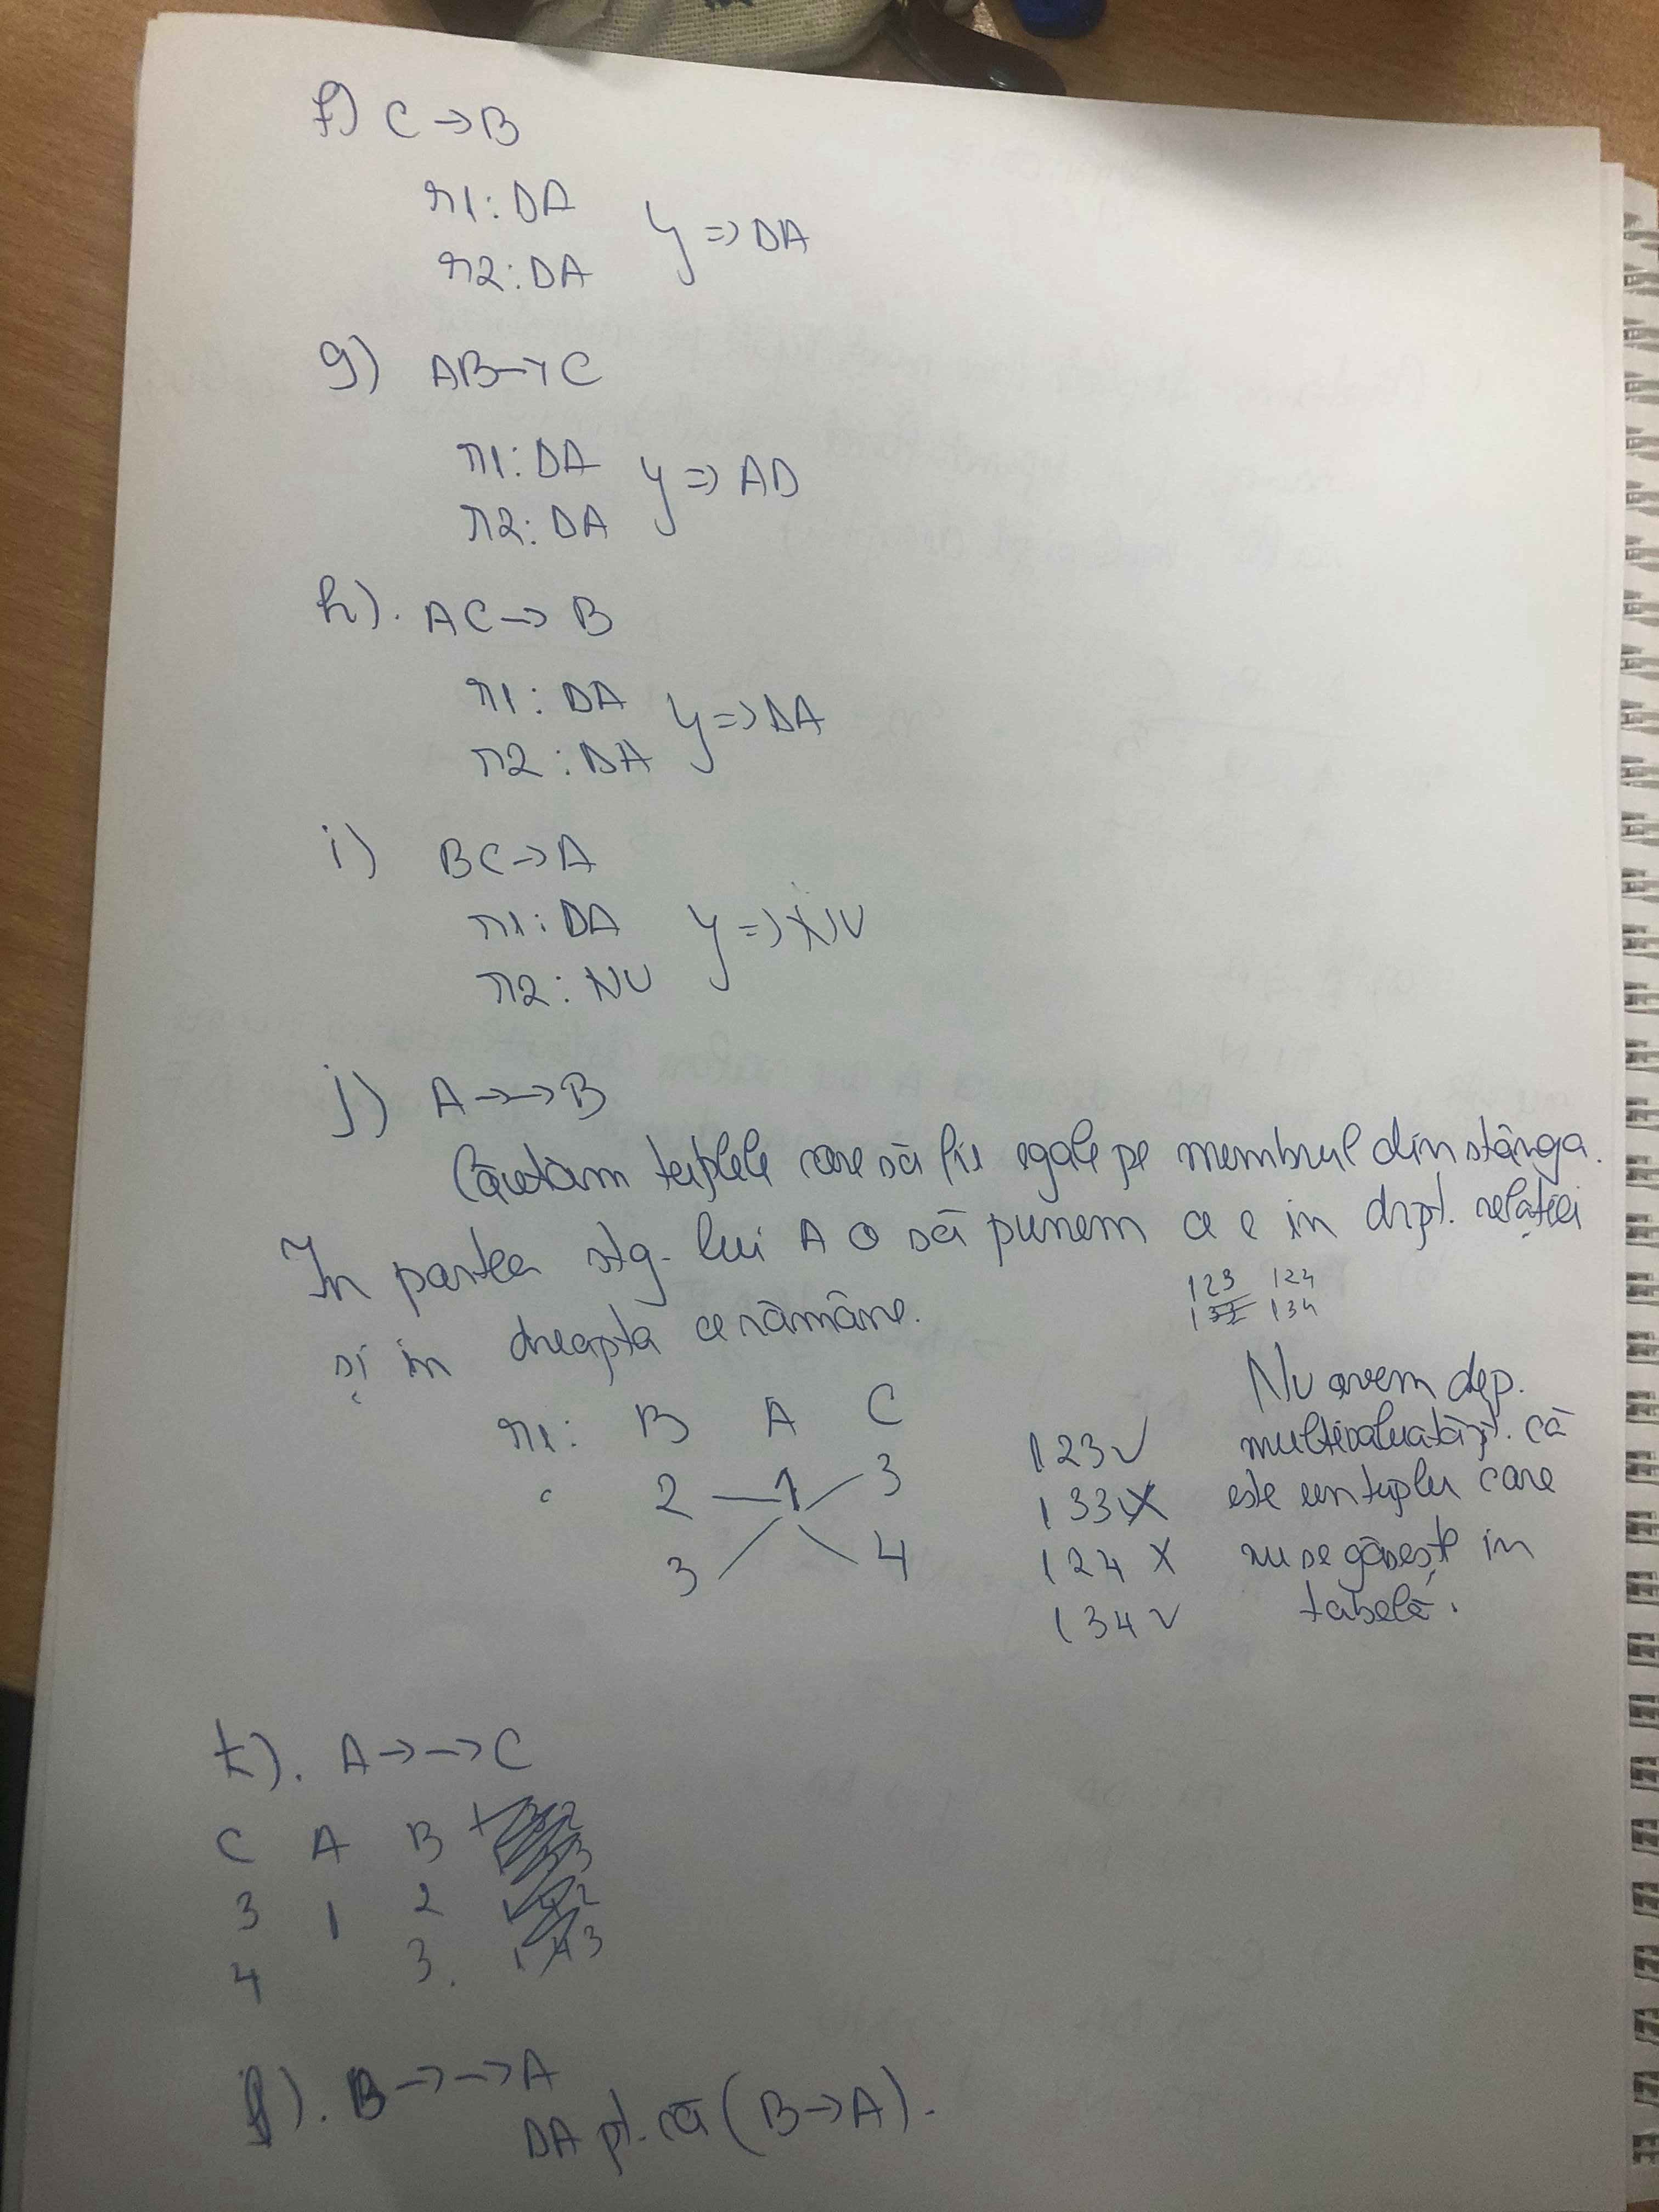 f) C → B
r1: DA
r2: DA } => DA
g) AB → C
r1: DA
r2: DA } => AD
h). AC → B
r1: DA
r2: DA } => DA
i) BC → A
r1: DA
r2: NU } => NU
j) A →→ B
Căutăm tuplele care să fie egale pe membrul din stânga.
În partea stg. lui A o să punem ce e in drpt. relației
și in dreapta ce rămâne.
123 124
134
r1: B A C
2 1 3
3 4
123 ✓
133 X
124 X
134 ✓
Nu avem dep.
multivaluată pt. că
este un tuplu care
nu se găsește in
tabelă.
k). A →→ C
C A B
3 1 2
4 3.
l). B →→ A
DA pt. că (B → A).